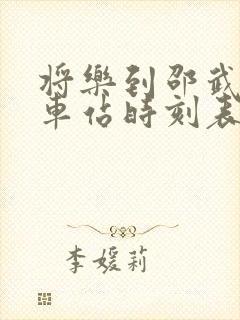 将樂到邵武
車佔時刻表
李媛莉